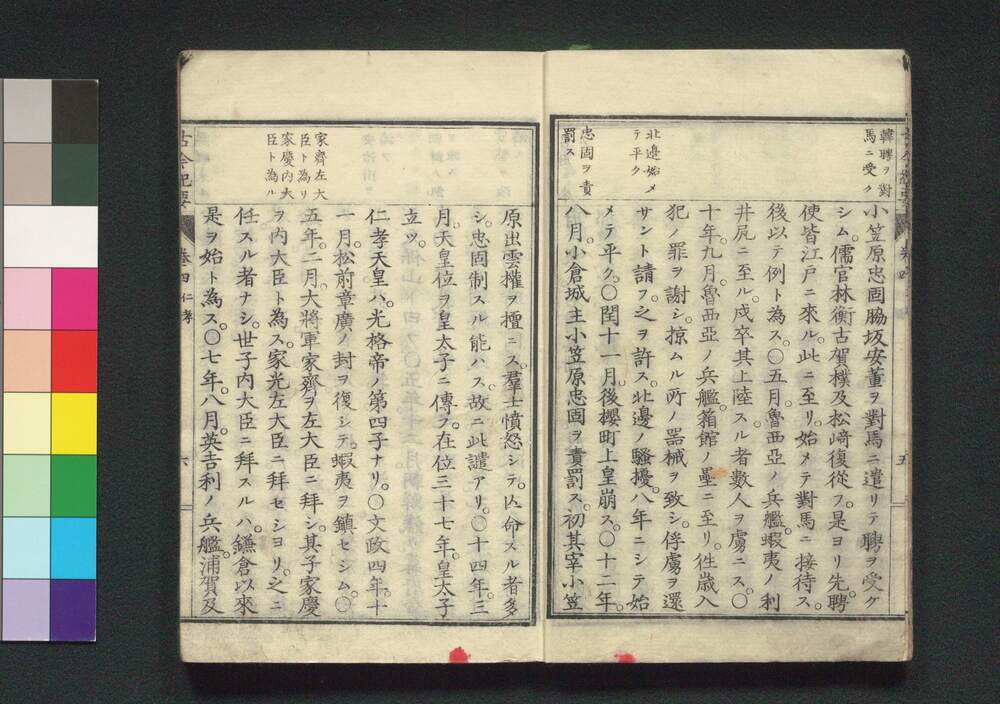 韓聘ヲ對
馬ニ受ク
小笠原忠固脇坂安董ヲ對馬ニ遣リテ聘ヲ受ケ
シム。儒官林衡古賀樸及松﨑復從フ。是ヨリ先聘
使皆江戸ニ來ル。此ニ至リ。始メテ對馬ニ接待ス。
後以テ例ト為ス。〇五月。魯西亞ノ兵艦。蝦夷ノ利
井尻ニ至ル。戍卒其上陸スル者數人ヲ虜ニス。〇
十年。九月。魯西亞ノ兵艦。箱館ノ壘ニ至リ。徃歳入
犯ノ罪ヲ謝シ。掠ムル所ノ器械ヲ致シ。俘虜ヲ還
サント請フ。之ヲ許ス。北邊ノ騷擾。八年ニシテ始
メテ平ク。〇閏十一月。後櫻町上皇崩ス。〇十二年。
八月。小倉城主小笠原忠固ヲ責罰ス。初其宰小笠
北邊始メ
テ平ク
忠固ヲ責
罰ス
原出雲權ヲ擅ニス。羣士憤怒シテ。亾命スル者多
シ。忠固制スル能ハス。故ニ此譴アリ。〇十四年。三
月。天皇位ヲ皇太子ニ傳フ。在位三十七年。皇太子
立ツ。
仁孝天皇ハ。光格帝ノ第四子ナリ。〇文政四年。十
一月。松前章廣ノ封ヲ復シテ。蝦夷ヲ鎭セシム。〇
五年。二月。大將軍家齊ヲ左大臣ニ拜シ。其子家慶
ヲ内大臣ト為ス。家光左大臣ニ拜セシヨリ。之ニ
任スル者ナシ。世子内大臣ニ拜スルハ。鎌倉以來
是ヲ始ト為ス。〇七年。八月。英吉利ノ兵艦。浦賀及
家齊左大
臣ト為リ
家慶内大
臣ト為ル
古今紀要
卷四 仁孝
六